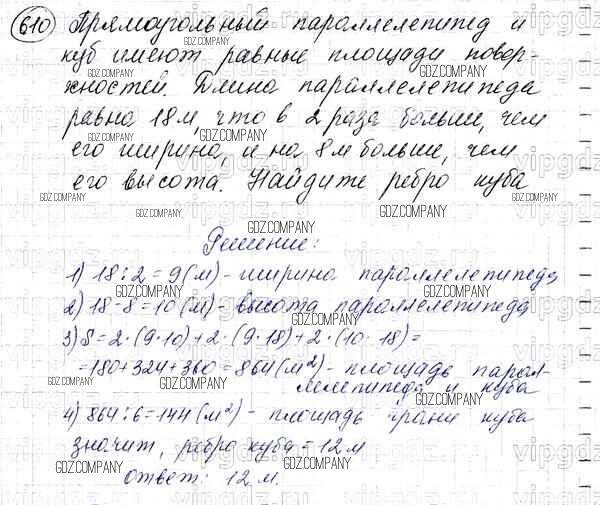 610 Прямоугольный параллелепипед и
куб имеют равные площади повер-
хностей. Длина параллелепипеда
равна 18 м, что в 2 раза больше, чем
его ширина, и на 8 м больше, чем
его высота. Найдите ребро куба
Решение:
1) 18:2=9(м)-ширина параллелепипеда
2) 18-8=10(м)-высота параллелепипеда
3) S=2·(9·10)+2·(9·18)+2·(10·18)=
=180+324+360=864(м²)-площадь парал-
лелепипеда и куба
4) 864:6=144(м²)-площадь грани куба
значит, ребро куба=12м
ответ: 12м.